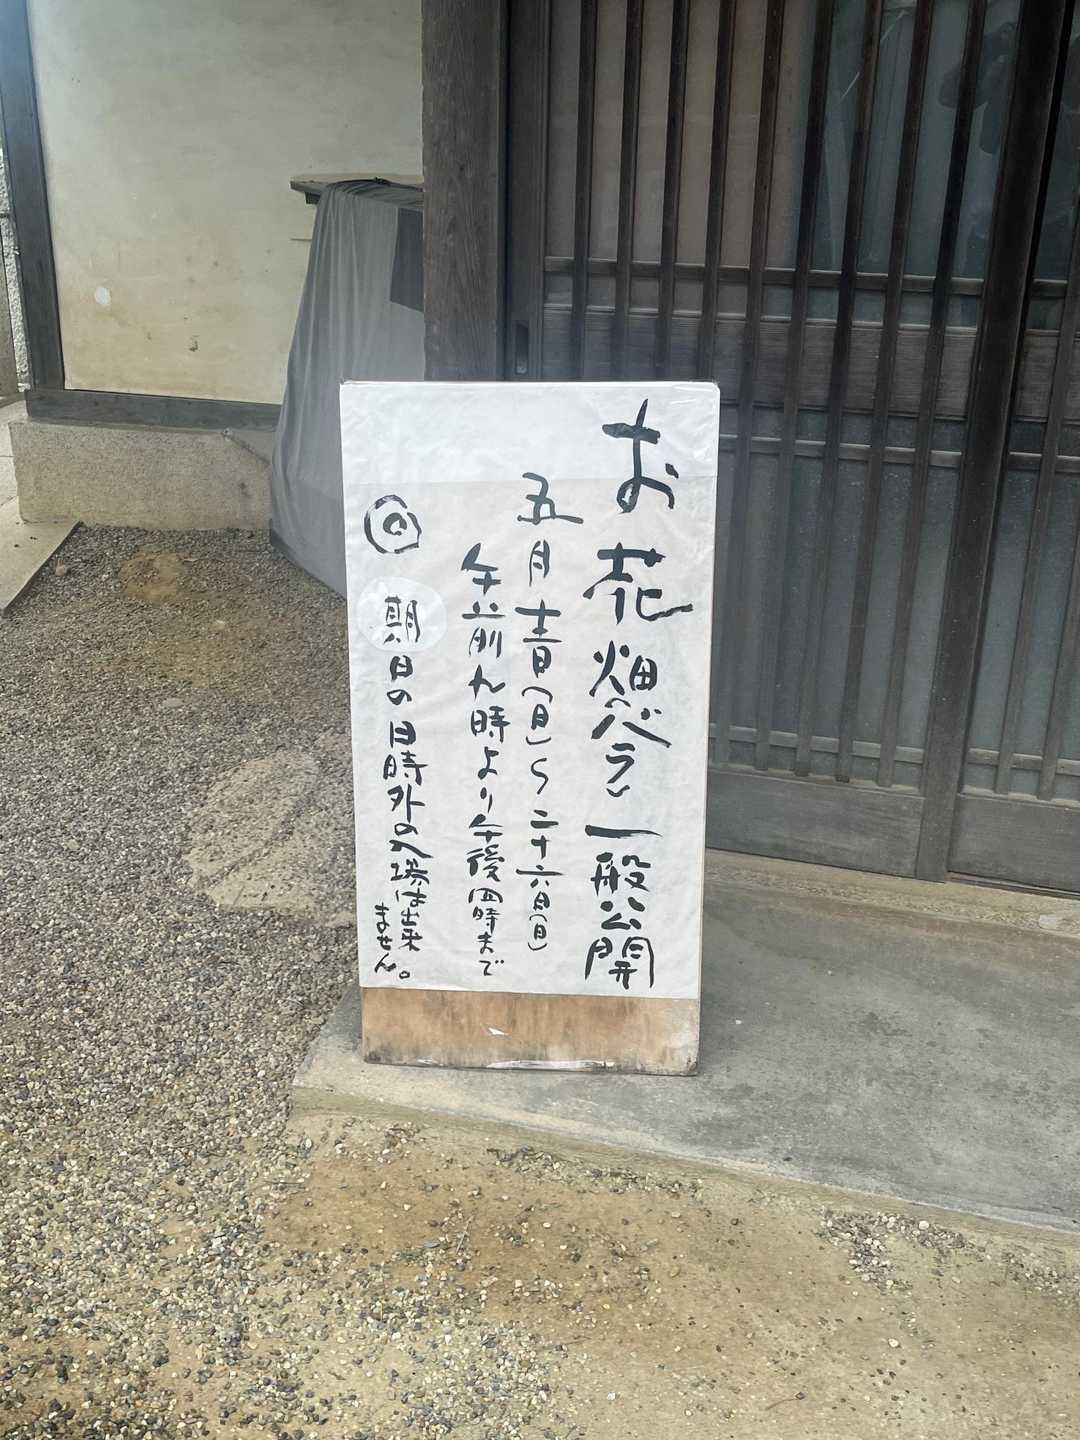 お花畑(バラ)一般公開
五月十二日(日)〜二十六日(日)
午前九時より午後四時まで
◎期日の日時外の入場は出来
ません。